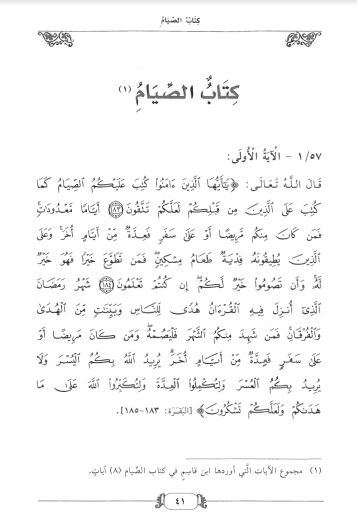 كِتَابُ الصِّيَامُ
كِتَابُ الصِّيَامُ (١)
١/٥٧ - الْآيَةُ الْأُولَى:
قَالَ اللَّهُ تَعَالَى: ﴿يَٰٓأَيُّهَا ٱلَّذِينَ ءَامَنُوا۟ كُتِبَ عَلَيْكُمُ ٱلصِّيَامُ كَمَا
كُتِبَ عَلَى ٱلَّذِينَ مِن قَبْلِكُمْ لَعَلَّكُمْ تَتَّقُونَ ۝١٨٣ أَيَّامًا مَّعْدُودَٰتٍ ۚ
فَمَن كَانَ مِنكُم مَّرِيضًا أَوْ عَلَىٰ سَفَرٍ فَعِدَّةٌ مِّنْ أَيَّامٍ أُخَرَ ۚ وَعَلَى
ٱلَّذِينَ يُطِيقُونَهُۥ فِدْيَةٌ طَعَامُ مِسْكِينٍ ۖ فَمَن تَطَوَّعَ خَيْرًا فَهُوَ خَيْرٌ
لَّهُۥ ۚ وَأَن تَصُومُوا۟ خَيْرٌ لَّكُمْ ۖ إِن كُنتُمْ تَعْلَمُونَ ۝١٨٤ شَهْرُ رَمَضَانَ
ٱلَّذِىٓ أُنزِلَ فِيهِ ٱلْقُرْءَانُ هُدًى لِّلنَّاسِ وَبَيِّنَٰتٍ مِّنَ ٱلْهُدَىٰ
وَٱلْفُرْقَانِ ۚ فَمَن شَهِدَ مِنكُمُ ٱلشَّهْرَ فَلْيَصُمْهُ ۖ وَمَن كَانَ مَرِيضًا أَوْ
عَلَىٰ سَفَرٍ فَعِدَّةٌ مِّنْ أَيَّامٍ أُخَرَ ۗ يُرِيدُ ٱللَّهُ بِكُمُ ٱلْيُسْرَ وَلَا
يُرِيدُ بِكُمُ ٱلْعُسْرَ وَلِتُكْمِلُوا۟ ٱلْعِدَّةَ وَلِتُكَبِّرُوا۟ ٱللَّهَ عَلَىٰ مَا
هَدَىٰكُمْ وَلَعَلَّكُمْ تَشْكُرُونَ﴾ [البَقَرَة: ١٨٣-١٨٥].
(١) مجموع الآيات الَّتي أوردها ابن قاسِمٍ في كتاب الصِّيام (٨) آياتٍ.
٤١